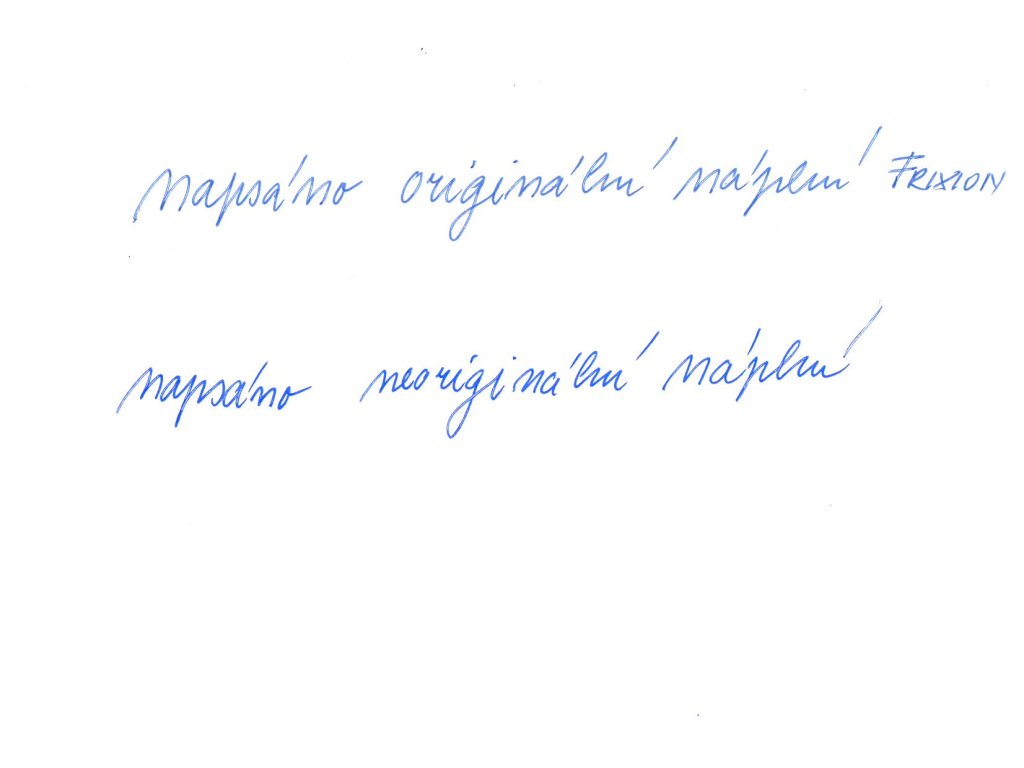 napsáno originální náplní FRIXION
napsáno neoriginální náplní